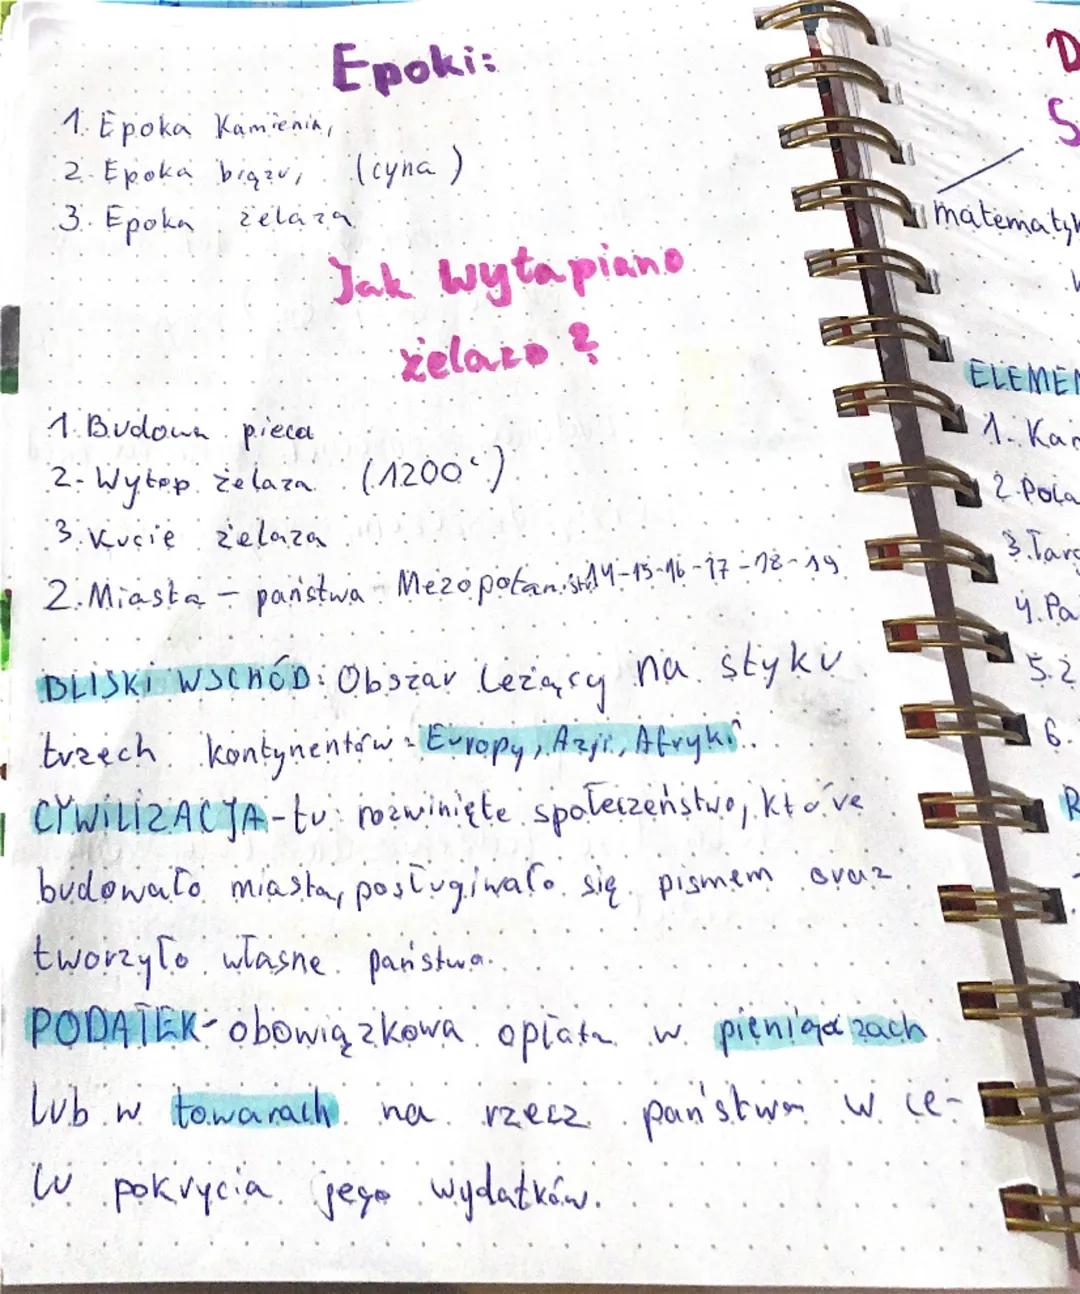 Epoki:
1. Epoka Kamienia,
2. Epoka brązu, (cyna)
3. Epoka żelaza
Jak wytapiano
żelazo?
1. Budowa pieca
2. Wytop żelaza (1200°)
3. Kucie żelaza
2. Miasta - państwa - Mezopotami str 14-15-16-17-18-19
BLISKI WSCHÓD: Obszar leżący na styku
trzech kontynentów: Europy, Azji, Afryki.
CYWILIZACJA - to: rozwinięte społeczeństwo, które
budowało miasta, posługiwało się pismem oraz
tworzyło własne państwa.
PODATEK - obowiązkowa opłata w pieniądzach
lub w towarach na rzecz państwa w ce-
lu pokrycia jego wydatków.
D
S
matematyk
ELEMEN
1. Kan
2. Pola
3. Targ
4. Pa
5. 2
6.
R